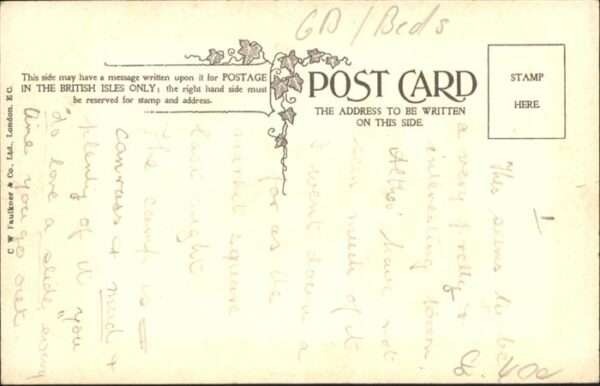 GB / Beds
This side may have a message written upon it for POSTAGE
IN THE BRITISH ISLES ONLY; the right hand side must
be reserved for stamp and address.
POST CARD
THE ADDRESS TO BE WRITTEN
ON THIS SIDE.
STAMP
HERE.
C. W. Faulkner & Co., Ltd., London, E.C.
This seems to be
a very pretty &
interesting town.
Altho' have not
seen much of it
I went down a
far as the
market square
last night
The camp is
canvass & mud &
plenty of it "you
do love a slide, every
time you go out.